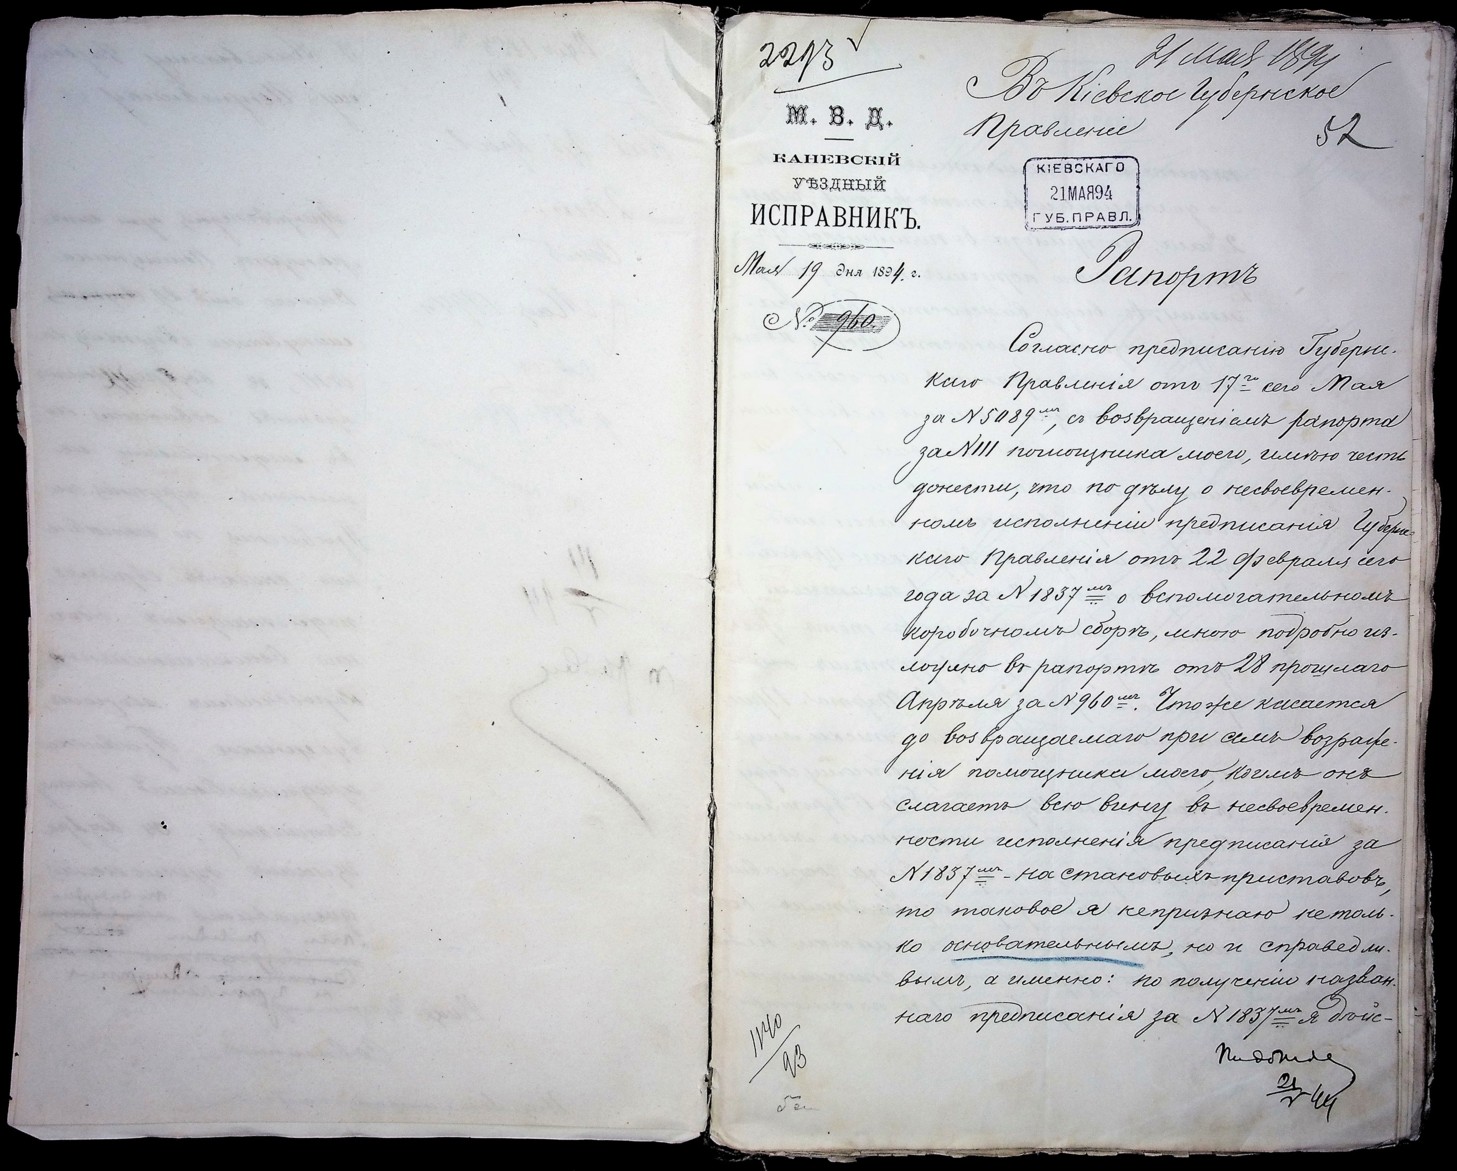 2293
21 Мая 1894
Въ Кіевское Губернское
Правленіе
52
М. В. Д.
КАНЕВСКІЙ
УѢЗДНЫЙ
ИСПРАВНИКЪ.
Мая 19 дня 1894 г.
№ 960.
КІЕВСКАГО
21МАЯ94
ГУБ.ПРАВЛ.
Рапортъ
Согласно предписанію Губернс-
каго Правленія отъ 17го сего Мая
за N5089мъ, съ возвращеніемъ рапорта
за N111 помощника моего, имѣю честь
донести, что по дѣлу о несвоевремен-
номъ исполненіи предписанія Губернс-
каго Правленія отъ 22 февраля сего
года за N1837мъ о вспомогательномъ
коробочномъ сборѣ, мною подробно из-
ложено въ рапортѣ отъ 28 прошлаго
Апрѣля за N960мъ. Что же касается
до возвращаемаго при семъ возраже-
нія помощника моего, коимъ онъ
слагаетъ всю вину въ несвоевремен-
ности исполненія предписанія за
N1837мъ - на становыхъ приставовъ,
то таковое я непризнаю не толь-
ко основательнымъ, но и справедли-
вымъ, а именно: по полученіи назван-
наго предписанія за N1837мъ я дѣйс-
1140/93
21/V 94